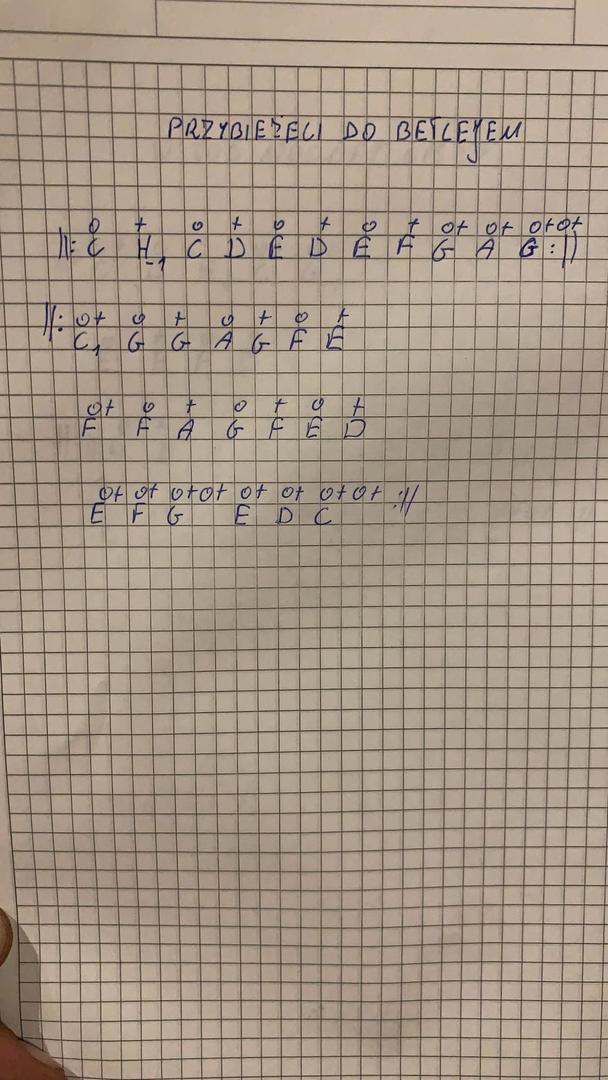 PRZYBIEŻELI DO BETLEJEM
o + o + o + o + o+ o+ o+o+
||: C H-1 C D E D E F G A G :||
o+ o + o + o +
||: C1 G G A G F E
o+ o + o + o +
F F A G F E D
o+ o+ o+o+ o+ o+ o+o+ :||
E F G E D C